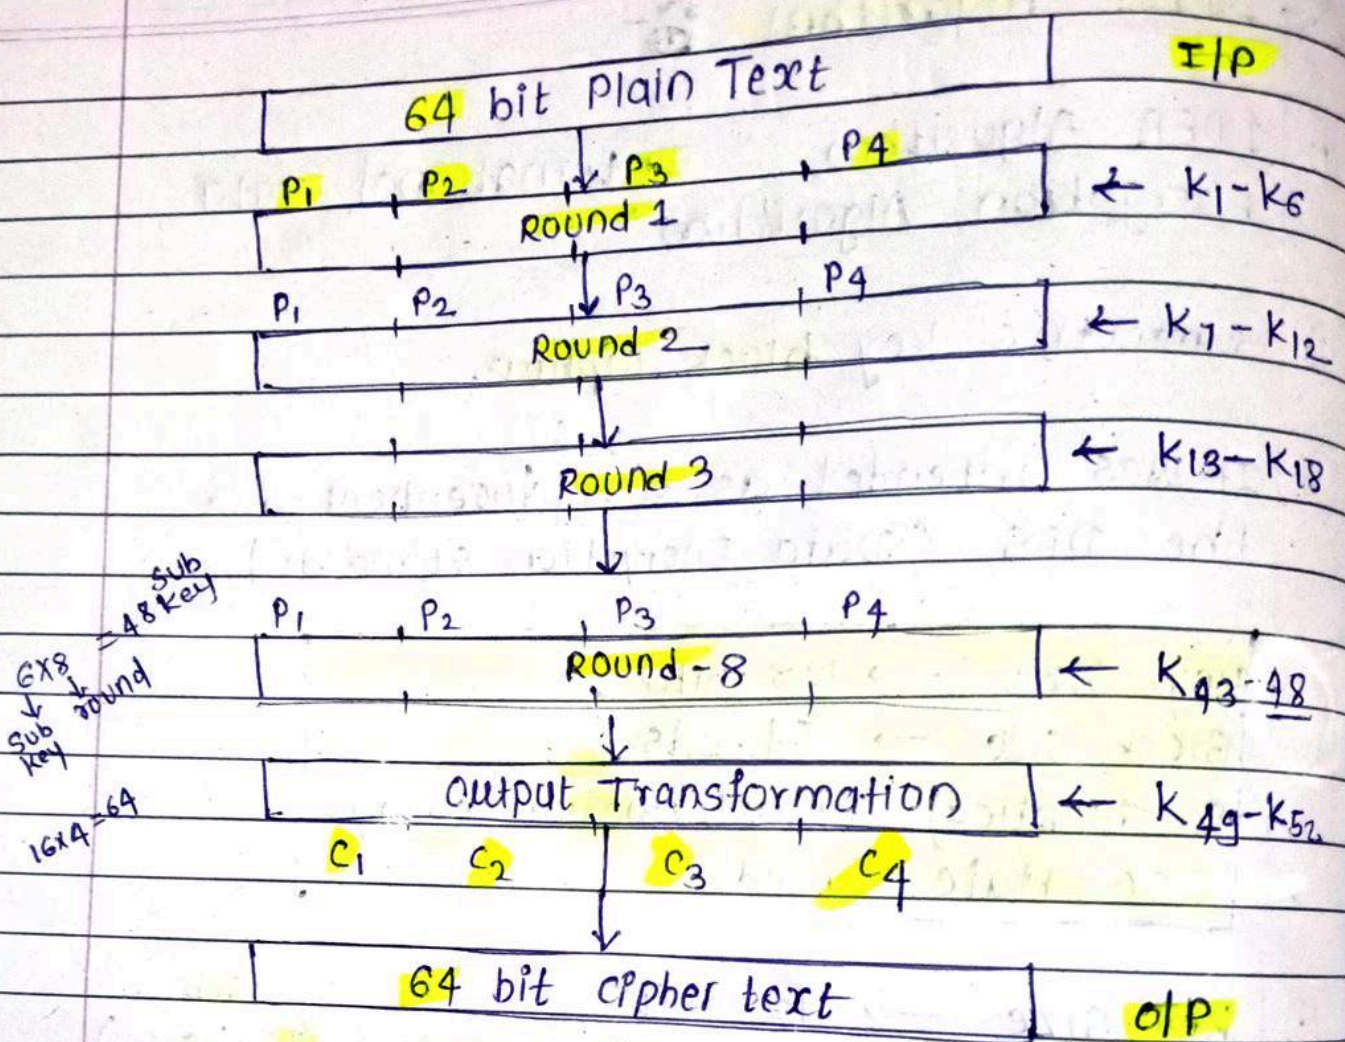 64 bit Plain Text I/P
P1 P2 P3 P4
Round 1 ← K1-K6
P1 P2 P3 P4
Round 2 ← K7-K12
Round 3 ← K13-K18
P1 P2 P3 P4
Round-8 ← K43-48
6x8 = 48 sub key
↓ ↓
sub key round
Output Transformation ← K49-K52
16x4=64
C1 C2 C3 C4
64 bit cipher text O/P